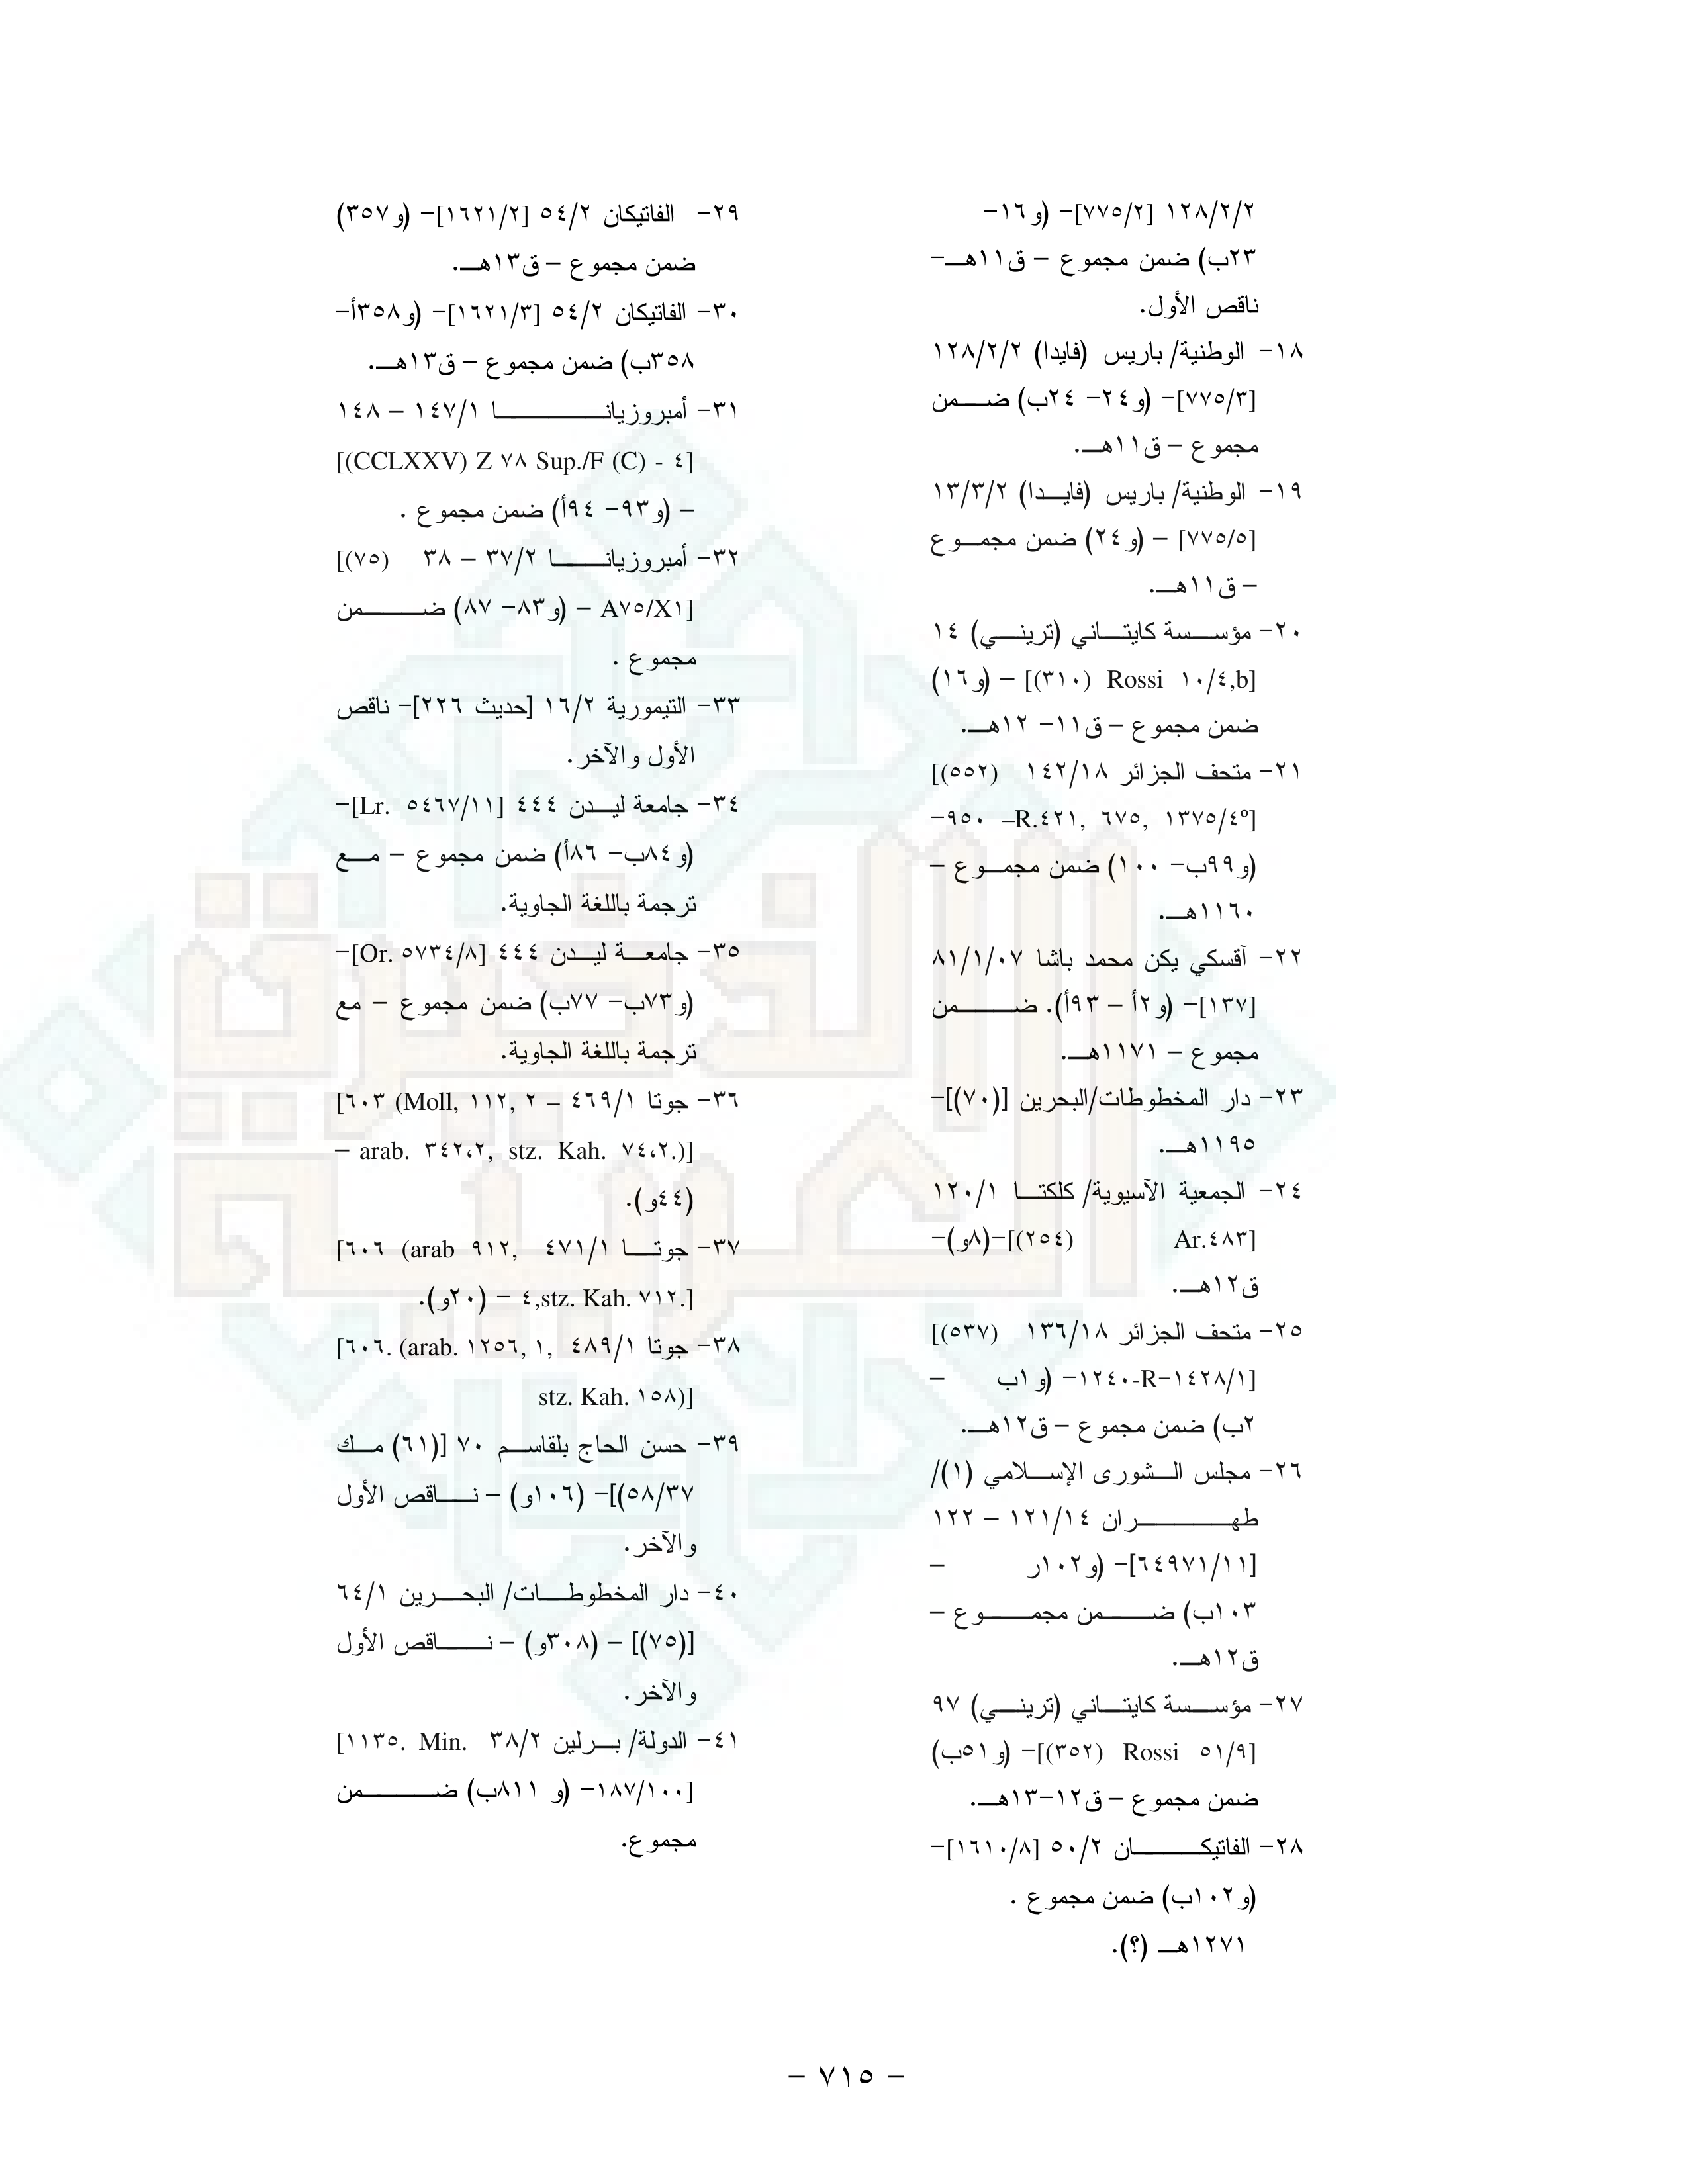 ١٢٨/٢/٢ [٧٧٥/٢]- (و١٦-
٢٣ب) ضمن مجموع – ق١١هـ-
ناقص الأول.
١٨- الوطنية/ باريس (فايدا) ١٢٨/٢/٢
[٧٧٥/٣]- (و٢٤- ٢٤ب) ضمن
مجموع – ق١١هـ.
١٩- الوطنية/ باريس (فايدا) ١٣/٣/٢
[٧٧٥/٥] – (و٢٤) ضمن مجموع
– ق١١هـ.
٢٠- مؤسسة كايتاني (تريني) ١٤
[Rossi ١٠/٤,b (٣١٠)] – (و١٦)
ضمن مجموع – ق١١- ١٢هـ.
٢١- متحف الجزائر ١٤٢/١٨ [(٥٥٢)
٩٥٠ –R.٤٢١, ٦٧٥, ١٣٧٥/٤°]-
(و٩٩ب- ١٠٠) ضمن مجموع –
١١٦٠هـ.
٢٢- آقسكي يكن محمد باشا ٨١/١/٠٧
[١٣٧]- (و٢أ – ٩٣أ). ضمن
مجموع – ١١٧١هـ.
٢٣- دار المخطوطات/البحرين [(٧٠)]-
١١٩٥هـ.
٢٤- الجمعية الآسيوية/ كلكتا ١٢٠/١
[Ar.٤٨٣ (٢٥٤)]-(٨و)-
ق١٢هـ.
٢٥- متحف الجزائر ١٣٦/١٨ [(٥٣٧)
١٢٤٠-R-١٤٢٨/١]- (و١ب –
٢ب) ضمن مجموع – ق١٢هـ.
٢٦- مجلس الشورى الإسلامي (١)/
طهران ١٢١/١٤ – ١٢٢
[٦٤٩٧١/١١]- (و١٠٢ر –
١٠٣ب) ضمن مجموع –
ق١٢هـ.
٢٧- مؤسسة كايتاني (تريني) ٩٧
[Rossi ٥١/٩ (٣٥٢)]- (و٥١ب)
ضمن مجموع – ق١٢-١٣هـ.
٢٨- الفاتيكان ٥٠/٢ [١٦١٠/٨]-
(و١٠٢ب) ضمن مجموع .
١٢٧١هـ (؟).
٢٩- الفاتيكان ٥٤/٢ [١٦٢١/٢]- (و٣٥٧)
ضمن مجموع – ق١٣هـ.
٣٠- الفاتيكان ٥٤/٢ [١٦٢١/٣]- (و٣٥٨أ-
٣٥٨ب) ضمن مجموع – ق١٣هـ.
٣١- أمبروزيانا ١٤٧/١ – ١٤٨
[(CCLXXV) Z ٧٨ Sup./F (C) - ٤]
– (و٩٣- ٩٤أ) ضمن مجموع .
٣٢- أمبروزيانا ٣٧/٢ – ٣٨ [(٧٥)
A٧٥/X١] – (و٨٣- ٨٧) ضمن
مجموع .
٣٣- التيمورية ١٦/٢ [حديث ٢٢٦]- ناقص
الأول والآخر.
٣٤- جامعة ليدن ٤٤٤ [Lr. ٥٤٦٧/١١]-
(و٨٤ب- ٨٦أ) ضمن مجموع – مع
ترجمة باللغة الجاوية.
٣٥- جامعة ليدن ٤٤٤ [Or. ٥٧٣٤/٨]-
(و٧٣ب- ٧٧ب) ضمن مجموع – مع
ترجمة باللغة الجاوية.
٣٦- جوتا ٤٦٩/١ – ٦٠٣ (Moll, ١١٢, ٢]
arab. ٣٤٢،٢, stz. Kah. ٧٤،٢.)] –
(٤٤و).
٣٧- جوتا ٤٧١/١ ,٦٠٦ (arab ٩١٢]
٤,stz. Kah. ٧١٢.] – (٢٠و).
٣٨- جوتا ٤٨٩/١ ,٦٠٦. (arab. ١٢٥٦, ١]
stz. Kah. ١٥٨)]
٣٩- حسن الحاج بلقاسم ٧٠ [(٦١) مك
٥٨/٣٧)]- (١٠٦و) – ناقص الأول
والآخر.
٤٠- دار المخطوطات/ البحرين ٦٤/١
[(٧٥)] – (٣٠٨و) – ناقص الأول
والآخر.
٤١- الدولة/ برلين ٣٨/٢ [١١٣٥. Min.
١٨٧/١٠٠]- (و ٨١١ب) ضمن
مجموع.
– ٧١٥ –